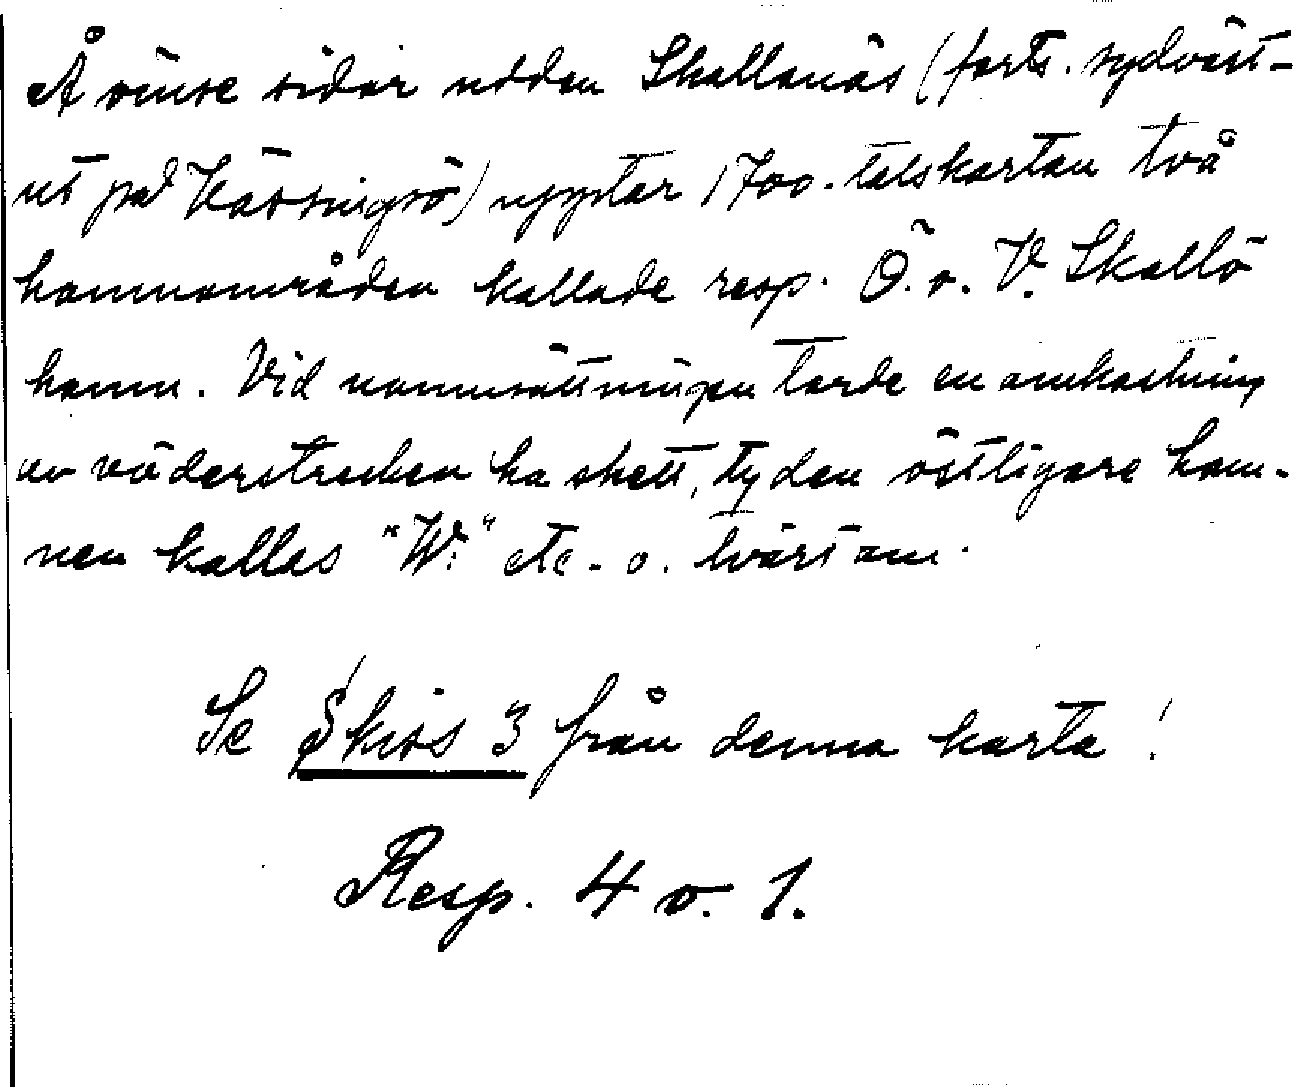 Å ömse sidor udden Skallanäs (forts. sydväst-
ut på Hässingsö) upptar 1700-talskartan två
hamnområden kallade resp. Ö. o. V. Skallö
hamn. Vid namnsättningen torde en omkastning
av väderstrecken ha skett, ty den östligare ham-
nen kallas "W." etc. o. tvärtom.
Se Skiss 3 från denna karta!
Resp. 4 o. 1.